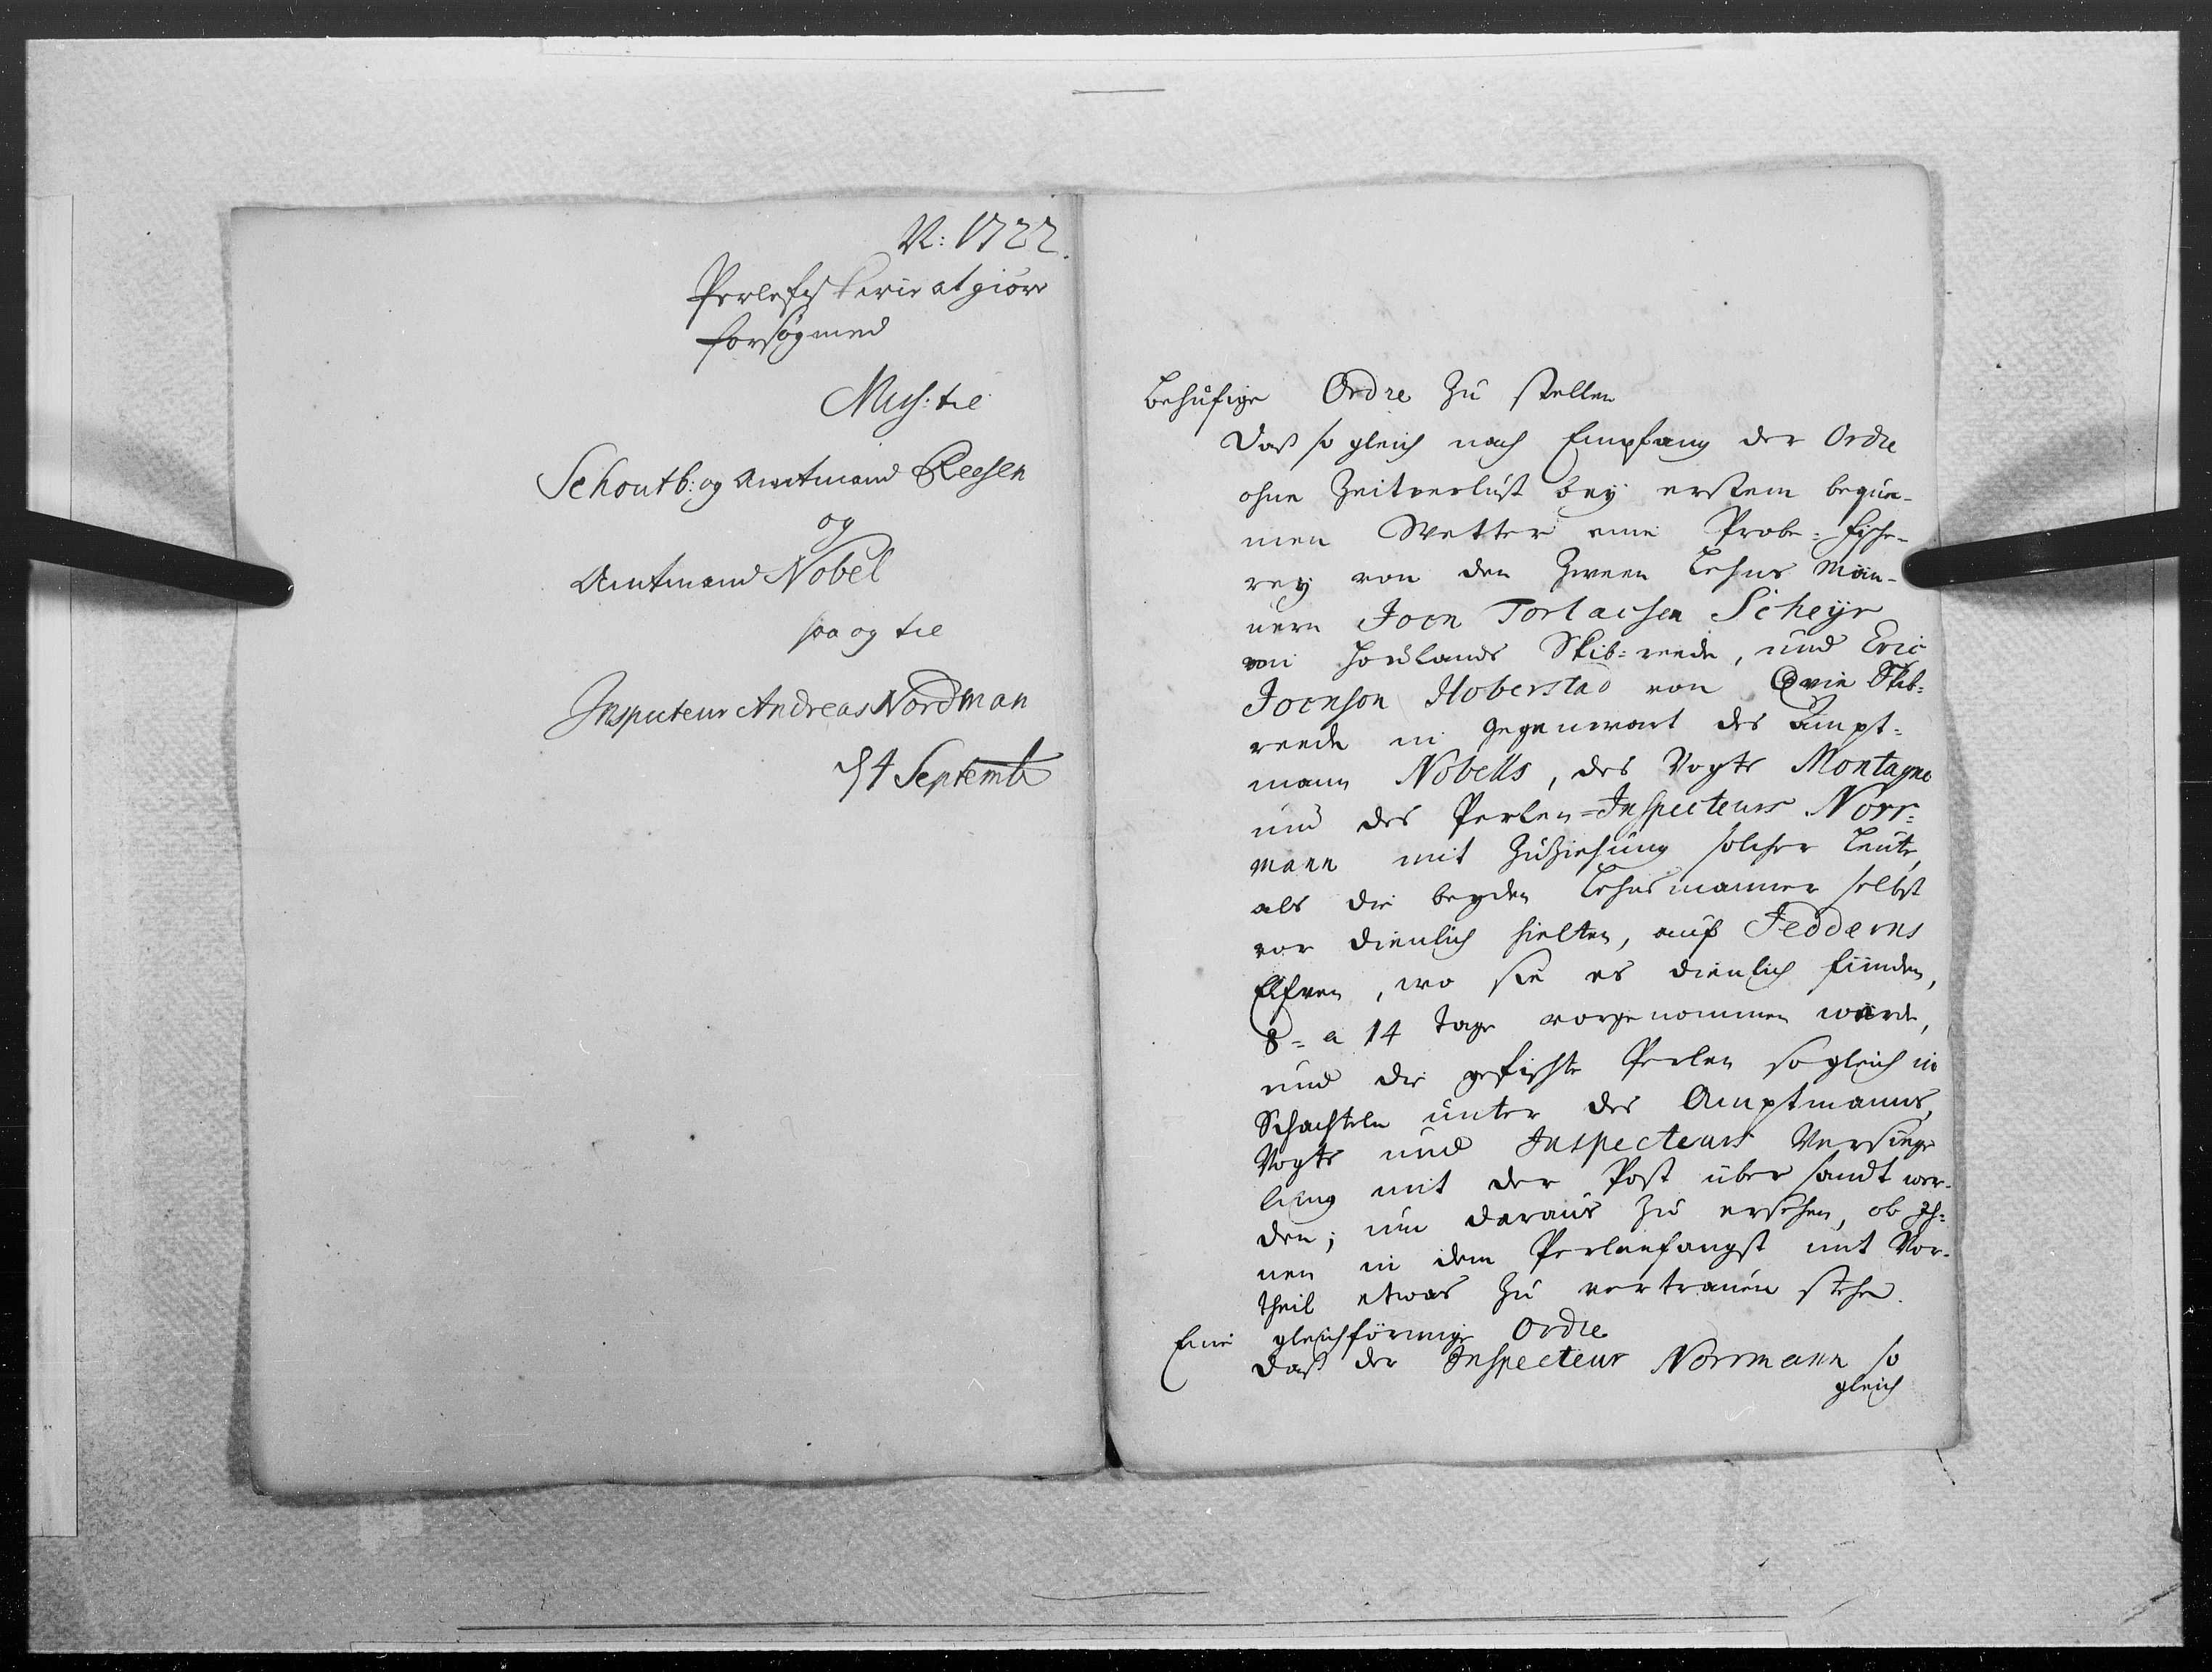 N: 1722.
Perlefiskerie at giöre
forsög med
Miss: til
Schoutb: og Amtmand Reesen
og
Amtmand Nobel
saa og til
Inspecteur Andreas Nordman
d 4 Septemb
behufige Ordre zu stellen
Daß so gleich nach Empfang der Ordre
ohne Zeitverlust bey erstem beque-
men Wetter eine Probe-fische-
rey von den zween Lehns Män-
nern Joen Torlaisen Scheye
von Horlands Skib-reede, und Eric
Joenson Hoberstad von Qvie Skib-
reede in gegenwart des Ampt-
mann Nobells, des Vogts Montagne
und des Perlen-Inspecteurs Norr-
mann mit Zuziehung solcher Leute,
als die beyden Lehnsmänner selbst
vor dienlich hielten, auf Jedderens
Elfven, wo sie es dienlich finden,
8- a 14 tage vorgenommen würde,
und die gefischte Perlen so gleich in
Schachteln unter des Amptmanns,
Vogts und Inspecteurs Versiege
lung mit der Post übersandt wer-
den; um daraus zu ersehen, ob Ih-
nen in dem Perlenfangst mit Vor-
theil etwas zu vertrauen stehe.
Eine gleichförmige Ordre
Daß der Inspecteur Norrmann so
gleich